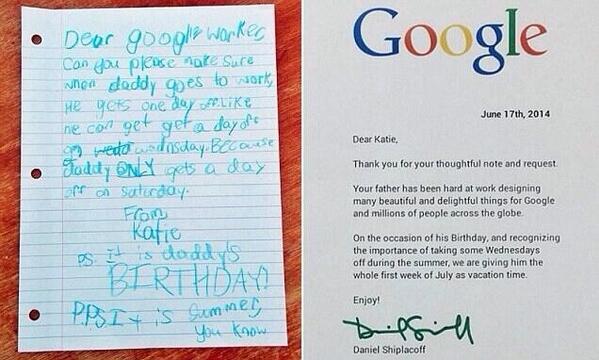 Dear google worker,
Can you please make sure
when daddy goes to work,
He gets one day off. Like
he can get get a day off
on wedd wednsday. Because
daddy ONLY gets a day
off on saturday.
From,
Katie
P.S. It is daddy's
BIRTHDAY!
P.P.S It is Summer,
you know
Google
June 17th, 2014
Dear Katie,
Thank you for your thoughtful note and request.
Your father has been hard at work designing
many beautiful and delightful things for Google
and millions of people across the globe.
On the occasion of his Birthday, and recognizing
the importance of taking some Wednesdays
off during the summer, we are giving him the
whole first week of July as vacation time.
Enjoy!
Daniel Shiplacoff